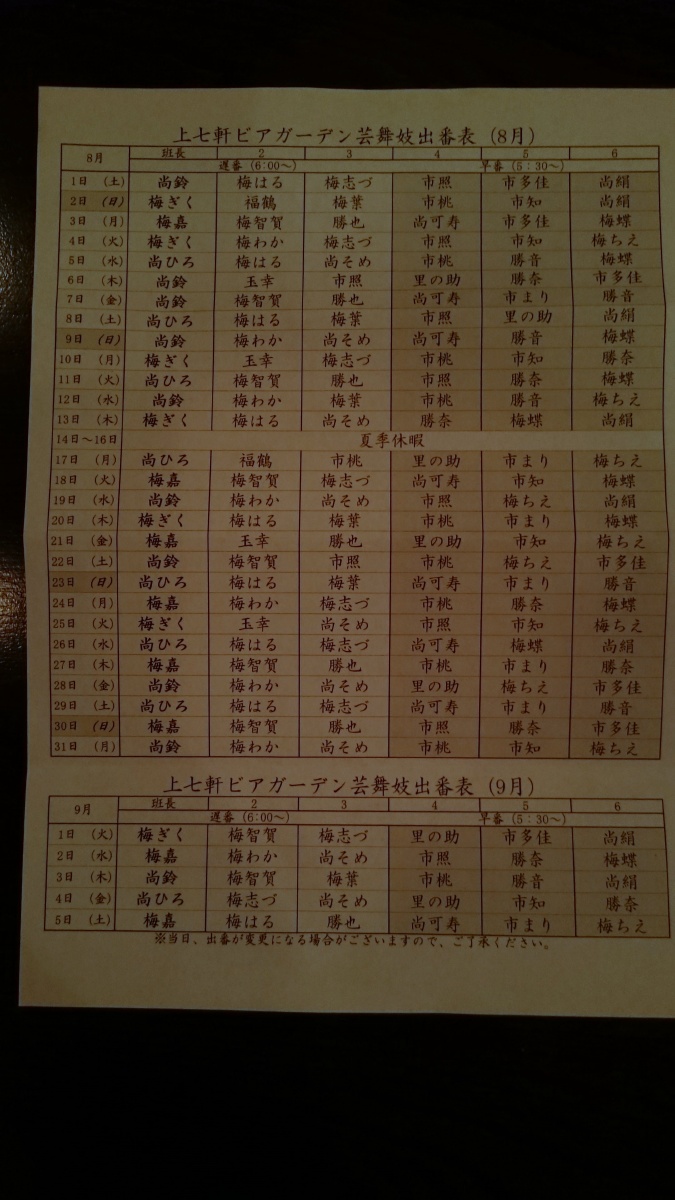 上七軒ビアガーデン芸舞妓出番表（8月）
8月 班長 2 3 4 5 6
遅番（6:00～） 早番（5:30～）
1日（土） 尚鈴 梅はる 梅志づ 市照 市多佳 尚絹
2日（日） 梅ぎく 福鶴 梅葉 市桃 市知 尚絹
3日（月） 梅嘉 梅智賀 勝也 尚可寿 市多佳 梅蝶
4日（火） 梅ぎく 梅わか 梅志づ 市照 市知 梅ちえ
5日（水） 尚ひろ 梅はる 尚そめ 市桃 勝音 梅蝶
6日（木） 尚鈴 玉幸 市照 里の助 勝奈 市多佳
7日（金） 尚鈴 梅智賀 勝也 尚可寿 市まり 勝音
8日（土） 尚ひろ 梅はる 梅葉 市照 里の助 尚絹
9日（日） 尚鈴 梅わか 尚そめ 尚可寿 勝音 梅蝶
10日（月） 梅ぎく 玉幸 梅志づ 市桃 市知 勝奈
11日（火） 尚ひろ 梅智賀 勝也 市照 勝奈 梅蝶
12日（水） 尚鈴 梅わか 梅葉 市桃 勝音 梅ちえ
13日（木） 梅ぎく 梅はる 尚そめ 勝奈 梅蝶 尚絹
14日～16日 夏季休暇
17日（月） 尚ひろ 福鶴 市桃 里の助 市まり 梅ちえ
18日（火） 梅嘉 梅智賀 梅志づ 尚可寿 市知 梅蝶
19日（水） 尚鈴 梅わか 尚そめ 市照 梅ちえ 尚絹
20日（木） 梅ぎく 梅はる 梅葉 市桃 市まり 梅蝶
21日（金） 梅嘉 玉幸 勝也 里の助 市知 梅ちえ
22日（土） 尚鈴 梅智賀 市照 市桃 梅ちえ 市多佳
23日（日） 尚ひろ 梅はる 梅葉 尚可寿 市まり 勝音
24日（月） 梅嘉 梅わか 梅志づ 市桃 勝奈 梅蝶
25日（火） 梅ぎく 玉幸 尚そめ 市照 市知 梅ちえ
26日（水） 尚ひろ 梅はる 梅志づ 尚可寿 梅蝶 尚絹
27日（木） 梅嘉 梅智賀 勝也 市桃 市まり 勝奈
28日（金） 尚鈴 梅わか 尚そめ 里の助 梅ちえ 市多佳
29日（土） 尚ひろ 梅はる 梅志づ 尚可寿 市まり 勝音
30日（日） 梅嘉 梅智賀 勝也 市照 勝奈 市多佳
31日（月） 尚鈴 梅わか 尚そめ 市桃 市知 梅ちえ
上七軒ビアガーデン芸舞妓出番表（9月）
9月 班長 2 3 4 5 6
遅番（6:00～） 早番（5:30～）
1日（火） 梅ぎく 梅智賀 梅志づ 里の助 市多佳 尚絹
2日（水） 梅嘉 梅わか 尚そめ 市照 勝奈 梅蝶
3日（木） 尚鈴 梅智賀 梅葉 市桃 勝音 尚絹
4日（金） 尚ひろ 梅志づ 尚そめ 里の助 市知 勝奈
5日（土） 梅嘉 梅はる 勝也 尚可寿 市まり 梅ちえ
※当日、出番が変更になる場合がございますので、ご了承ください。